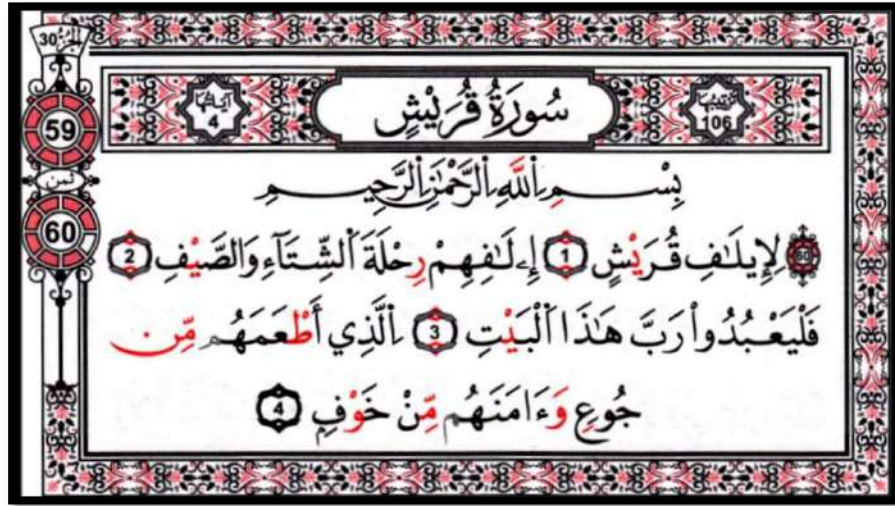 الجزء 30
ترتيبها 106 سُورَةُ قُرَيْشٍ آياتها 4
59
ثمن
60
بِسْمِ اِ۬للَّهِ اِ۬لرَّحْمَٰنِ اِ۬لرَّحِيمِ
60 لِإِيلَٰفِ قُرَيْشٍ 1 إِۦلَٰفِهِمْ رِحْلَةَ اَ۬لشِّتَآءِ وَالصَّيْفِ 2
فَلْيَعْبُدُواْ رَبَّ هَٰذَا اَ۬لْبَيْتِ 3 اِ۬لَّذِي أَطْعَمَهُم مِّن
جُوعٍ وَءَامَنَهُم مِّنْ خَوْفٍ 4